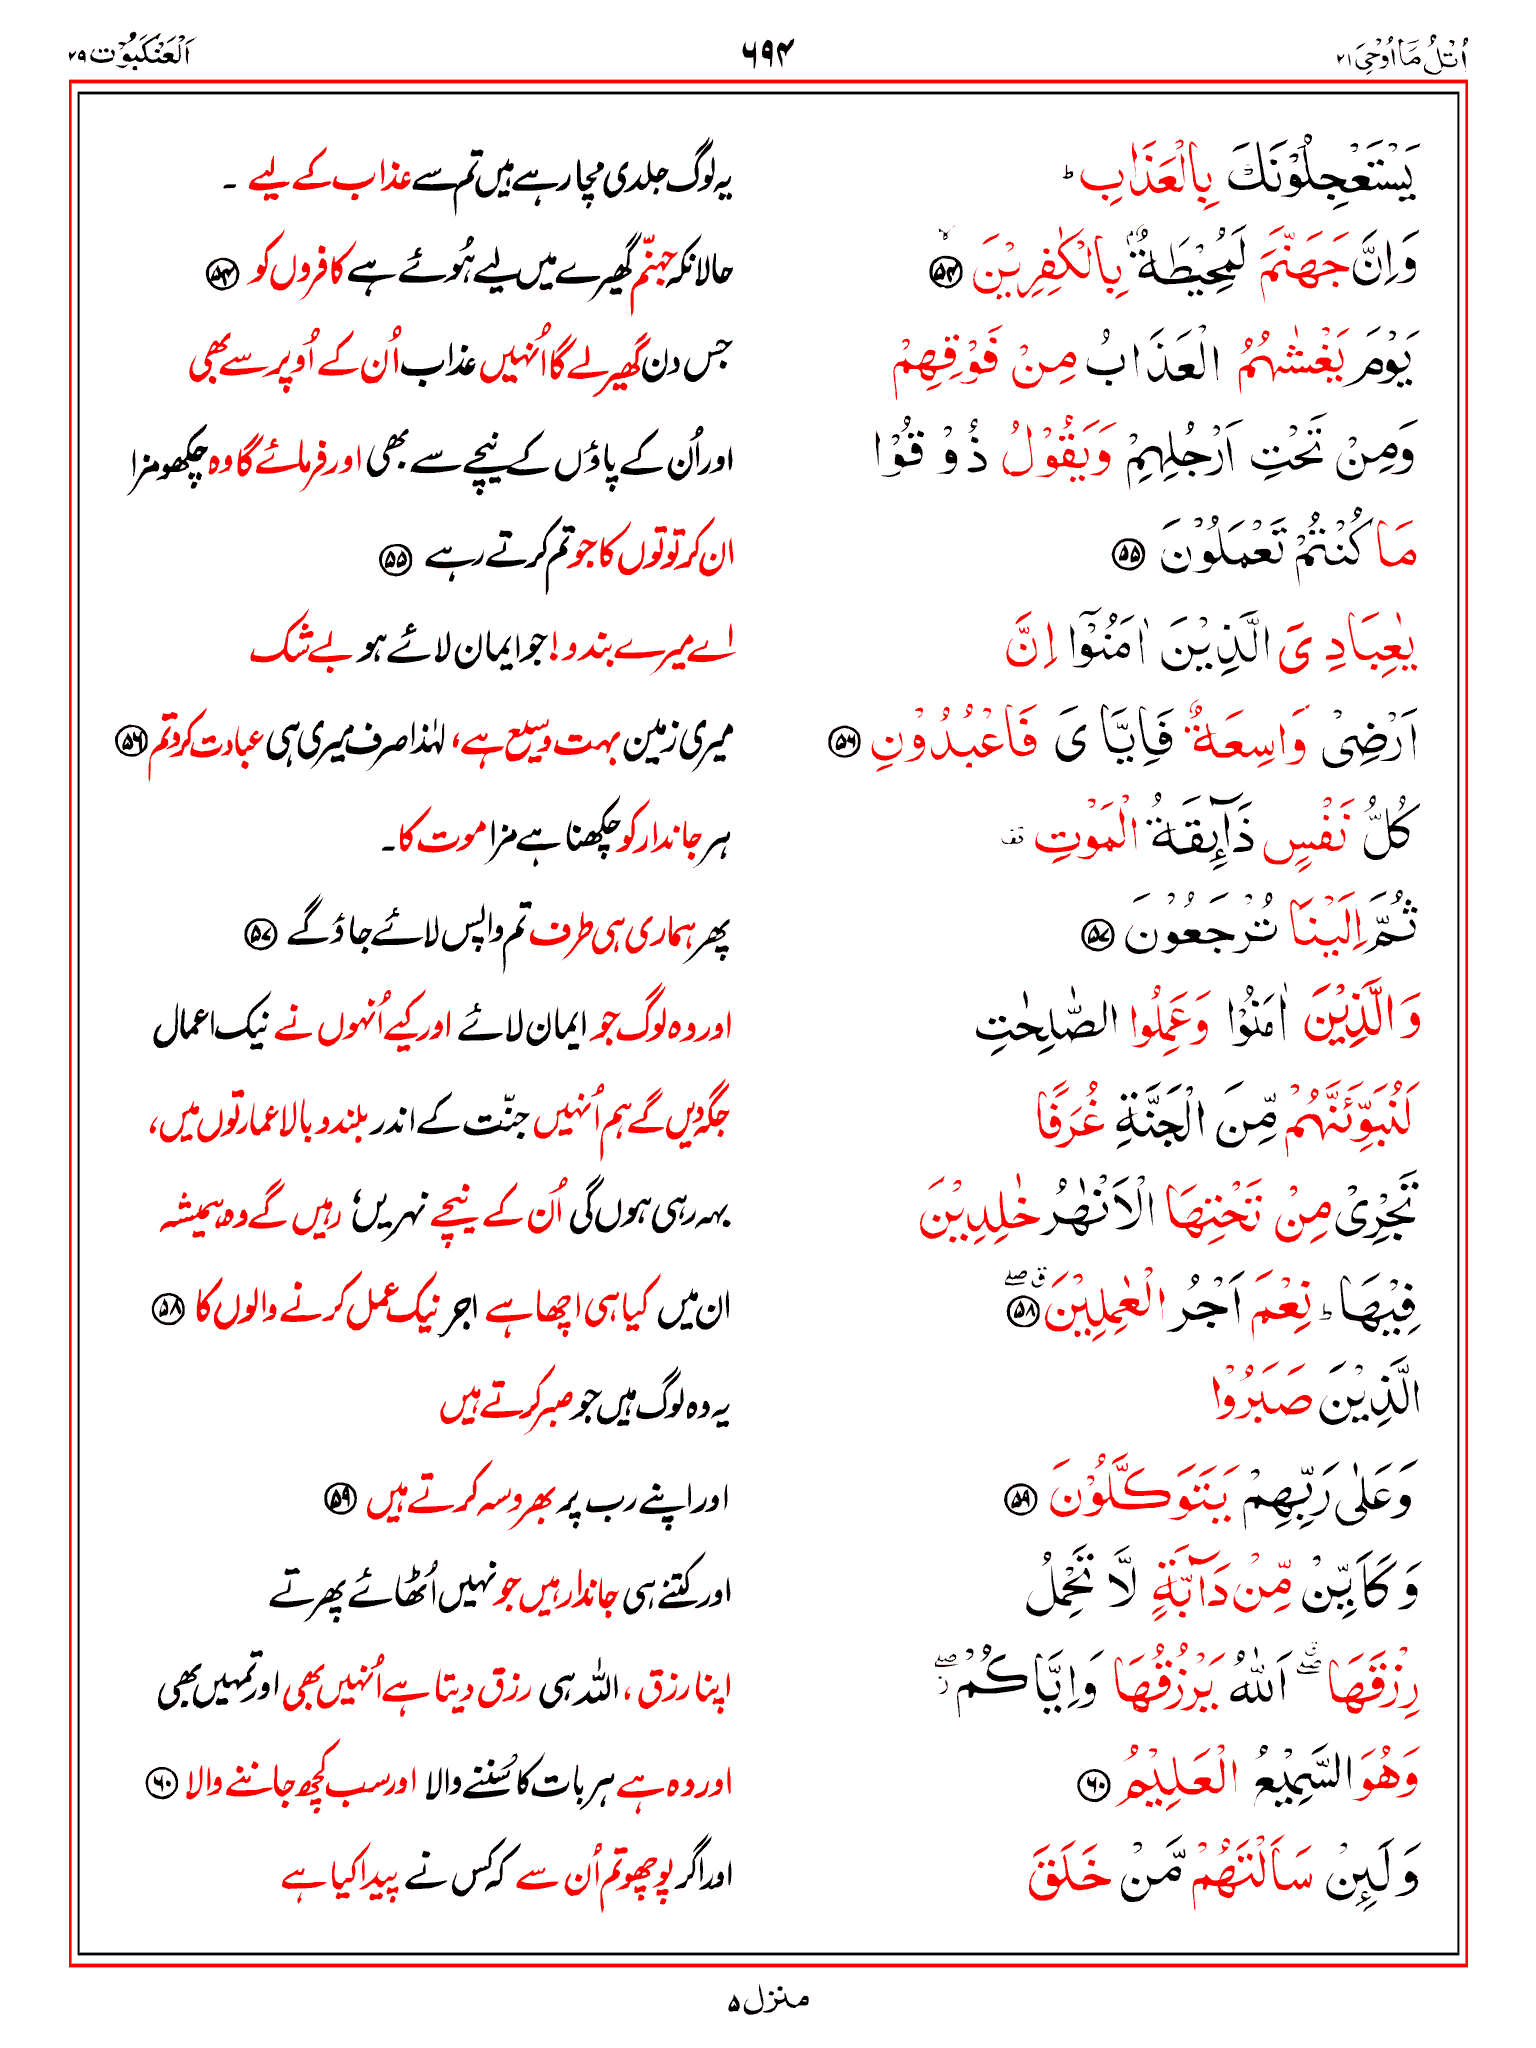 اُتْلُ مَآ اُوْحِیَ ۲۱
۶۹۴
اَلْعَنْکَبُوْت ۲۹
یَسْتَعْجِلُوْنَكَ بِالْعَذَابِ ؕ
یہ لوگ جلدی مچا رہے ہیں تم سے عذاب کے لیے ۔
وَاِنَّ جَهَنَّمَ لَمُحِیْطَةٌۢ بِالْكٰفِرِیْنَ ۙ ۵۴
حالانکہ جہنّم گھیرے میں لیے ہُوئے ہے کافروں کو ۵۴
یَوْمَ یَغْشٰىهُمُ الْعَذَابُ مِنْ فَوْقِهِمْ
جس دن گھیر لے گا اُنہیں عذاب اُن کے اُوپر سے بھی
وَمِنْ تَحْتِ اَرْجُلِهِمْ وَیَقُوْلُ ذُوْقُوْا
اور اُن کے پاؤں کے نیچے سے بھی اور فرمائے گا وہ چکھو مزا
مَا كُنْتُمْ تَعْمَلُوْنَ ۵۵
ان کرتوتوں کا جو تم کرتے رہے ۵۵
یٰعِبَادِیَ الَّذِیْنَ اٰمَنُوْۤا اِنَّ
اے میرے بندو! جو ایمان لائے ہو بے شک
اَرْضِیْ وَاسِعَةٌ فَاِیَّایَ فَاعْبُدُوْنِ ۵۶
میری زمین بہت وسیع ہے، لہٰذا صرف میری ہی عبادت کرو تم ۵۶
كُلُّ نَفْسٍ ذَآىِٕقَةُ الْمَوْتِ قف
ہر جاندار کو چکھنا ہے مزا موت کا۔
ثُمَّ اِلَیْنَا تُرْجَعُوْنَ ۵۷
پھر ہماری ہی طرف تم واپس لائے جاؤ گے ۵۷
وَالَّذِیْنَ اٰمَنُوْا وَعَمِلُوا الصّٰلِحٰتِ
اور وہ لوگ جو ایمان لائے اور کیے اُنہوں نے نیک اعمال
لَنُبَوِّئَنَّهُمْ مِّنَ الْجَنَّةِ غُرَفًا
جگہ دیں گے ہم اُنہیں جنّت کے اندر بلند و بالا عمارتوں میں،
تَجْرِیْ مِنْ تَحْتِهَا الْاَنْهٰرُ خٰلِدِیْنَ
بہہ رہی ہوں گی اُن کے نیچے نہریں، رہیں گے وہ ہمیشہ
فِیْهَا ؕ نِعْمَ اَجْرُ الْعٰمِلِیْنَ ۵۸ ق صلے
ان میں کیا ہی اچھا ہے اجر نیک عمل کرنے والوں کا ۵۸
الَّذِیْنَ صَبَرُوْا
یہ وہ لوگ ہیں جو صبر کرتے ہیں
وَعَلٰى رَبِّهِمْ یَتَوَكَّلُوْنَ ۵۹
اور اپنے رب پر بھروسہ کرتے ہیں ۵۹
وَكَاَیِّنْ مِّنْ دَآبَّةٍ لَّا تَحْمِلُ
اور کتنے ہی جاندار ہیں جو نہیں اُٹھائے پھرتے
رِزْقَهَا ق صلے اَللّٰهُ یَرْزُقُهَا وَاِیَّاكُمْ صلے ز
اپنا رزق ، اللہ ہی رزق دیتا ہے اُنہیں بھی اور تمہیں بھی
وَهُوَ السَّمِیْعُ الْعَلِیْمُ ۶۰
اور وہ ہے ہر بات کا سُننے والا اور سب کچھ جاننے والا ۶۰
وَلَىِٕنْ سَاَلْتَهُمْ مَّنْ خَلَقَ
اور اگر پوچھو تم اُن سے کہ کس نے پیدا کیا ہے
منزل ۵